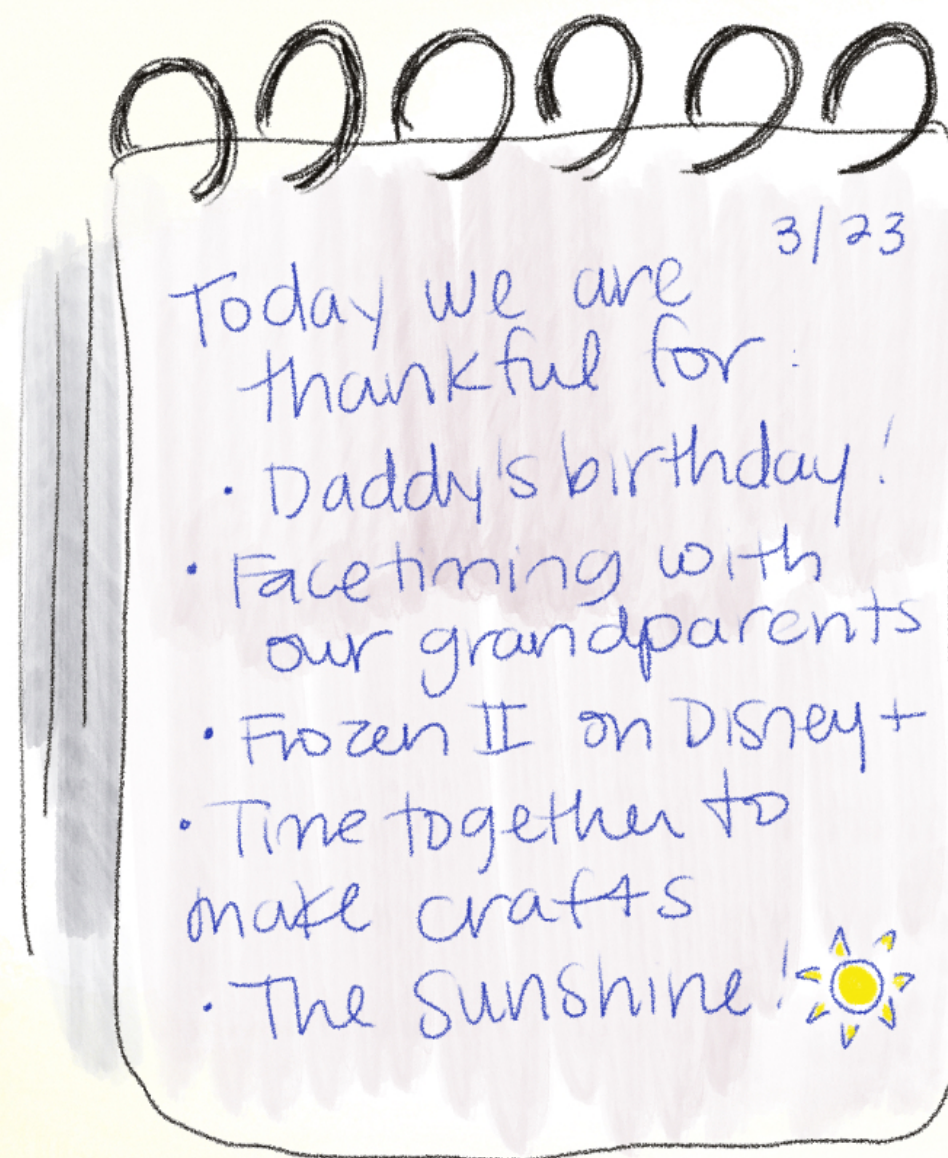 3/23
Today we are
thankful for:
• Daddy's birthday!
• Facetiming with
our grandparents
• Frozen II on Disney+
• Time together to
make crafts
• The Sunshine!